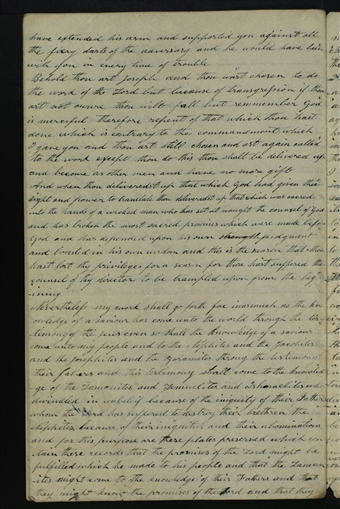 have extended his arm and supported you against all
the firey darts of the adversary and he would have been
with you in every time of trouble
Behold thou art Joseph and thou wast chosen to do
the work of the Lord but because of transgression if thou
art not aware thou wilt fall but remember God
is merciful therefore repent of that which thou hast
done which is contrary to the commandment which
I gave you and thou art still chosen and art again called
to the work except thou do this thou shalt be delivered up
and become as other men and have no more gift
And when thou deliveredst up that which God had given thee
sight and power to translate thou deliveredst up that which was sacred
into the hands of a wicked man who has set at naught the counsel of God
and has broken the most sacred promises which were made before
God and has depended upon his own judgement
and boasted in his own wisdom and this is the reason that thou
hast lost thy privileges for a season for thou hast suffered the
counsel of thy director to be trampled upon from the beg
inning
Nevertheless my word shall go forth for inasmuch as the kn
owledge of a Saviour has come unto the world through the tes
timony of the Jews even so shall the knowledge of a saviour
come unto my people and to the Nephites and the Jacobites
and the Josephites and the Zoramites through the testimony
their fathers and this testimony shall come to the knowled
ge of the Lamanites and Lemuelites and Ishmaelites who
dwindled in unbelief because of the iniquity of their Fathers
whom the Lord has suffered to destroy their brethren the
Nephites because of their iniquities and their abominations
and for this purpose are these plates preserved which con
tain these records that the promises of the Lord might be
fulfilled which he made to his people and that the Laman
ites might come to the knowledge of their Fathers and that
they might know the promises of the Lord and that they